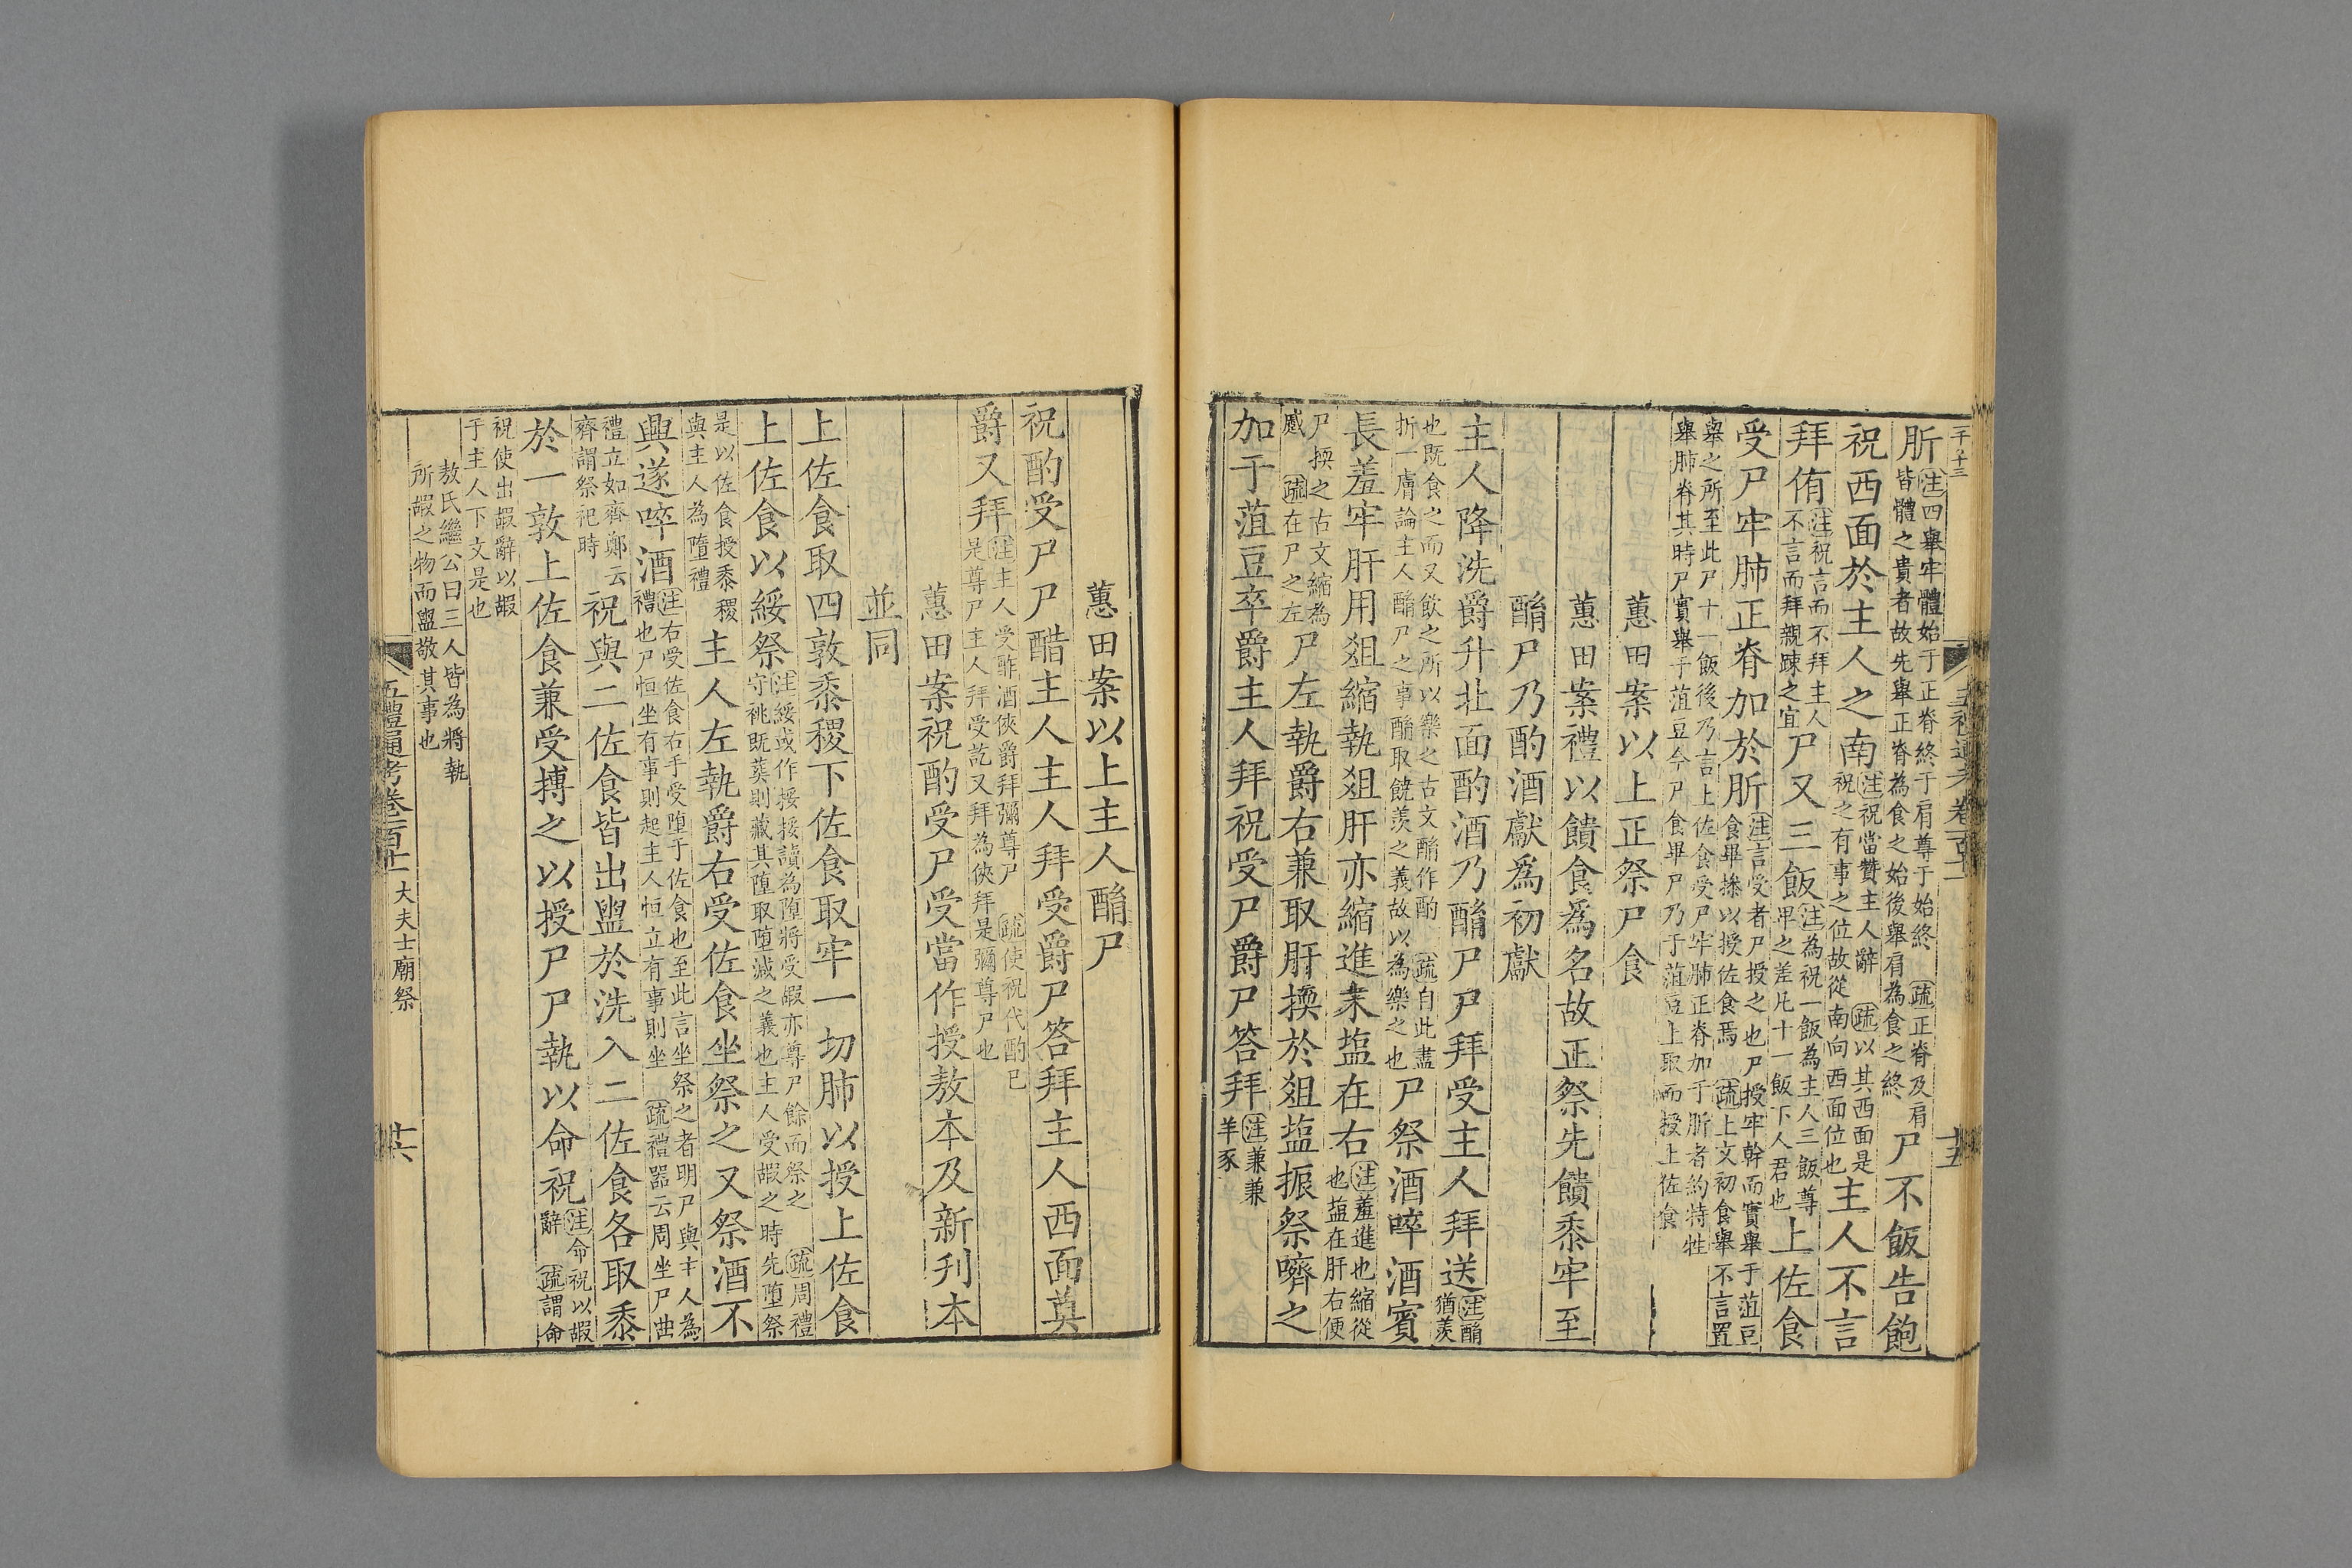 千𠦃三
五禮通考卷一百十一
十五
肵[注]四舉牢體始于正脊終于肩尊于始終 [疏]正脊及肩皆體之貴者故先舉正脊為食之始後舉肩為食之終 尸不飯告飽
祝西面於主人之南[注]祝當贊主人辭 [疏]以其西面是祝之有事之位故從南向西面位也主人不言
拜侑[注]祝言而不拜主人不言而拜親踈之宜尸又三飯[注]為祝一飯為主人三飯尊卑之差凡十一飯下人君也上佐食
受尸牢肺正脊加於肵[注]言受者尸授之也尸授牢幹而實舉于菹豆食畢操以授佐食焉 [疏]上文初食舉不言置
舉之所至此尸十一飯後乃言上佐食受尸牢肺正脊加于肵者約特牲舉肺脊其時尸實舉于菹豆今尸食畢尸乃于菹豆上取而授上佐食
蕙田案以上正祭尸食
蕙田案禮以饋食爲名故正祭先饋黍牢至
酳尸乃酌酒獻爲初獻
主人降洗爵升北面酌酒乃酳尸尸拜受主人拜送[注]酳猶羨
也既食之而又飲之所以樂之古文酳作酌 [疏]自此盡折一膚論主人酳尸之事酳取饒羨之義故以為樂之也尸祭酒啐酒賓
長羞牢肝用俎縮執俎肝亦縮進末塩在右[注]羞進也縮從也塩在肝右便
尸㨎之古文縮為蹙 [疏]在尸之左尸左執爵右兼取肝㨎於俎塩振祭嚌之
加于菹豆卒爵主人拜祝受尸爵尸答拜[注]兼兼羊豕
蕙田案以上主人酳尸
祝酌受尸尸醋主人主人拜受爵尸答拜主人西面奠
爵又拜[注]主人受酢酒俠爵拜彌尊尸 [疏]使祝代酌已是尊尸主人拜受訖又拜為俠拜是彌尊尸也
蕙田案祝酌受尸受當作授敖本及新刋本
並同
上佐食取四敦黍稷下佐食取牢一切肺以授上佐食
上佐食以綏祭[注]綏或作挼挼讀為墮將受嘏亦尊尸餘而祭之 [疏]周禮守祧既葬則藏其墮取墮減之義也主人受嘏之時先墮祭
是以佐食授黍稷與主人為墮禮主人左執爵右受佐食坐祭之又祭酒不
興遂啐酒[注]右受佐食右手受墮于佐食也至此言坐祭之者明尸與主人為禮也尸恒坐有事則起主人恒立有事則坐 [疏]禮器云周坐尸曲
禮立如齊鄭云齊謂祭祀時祝與二佐食皆出盥於洗入二佐食各取黍
於一敦上佐食兼受摶之以授尸尸執以命祝[注]命祝以嘏辭 [疏]謂命
祝使出嘏辭以嘏于主人下文是也
敖氏繼公曰三人皆為將執所嘏之物而盥敬其事也
五禮通考卷一百十一 大夫士廟祭
十六